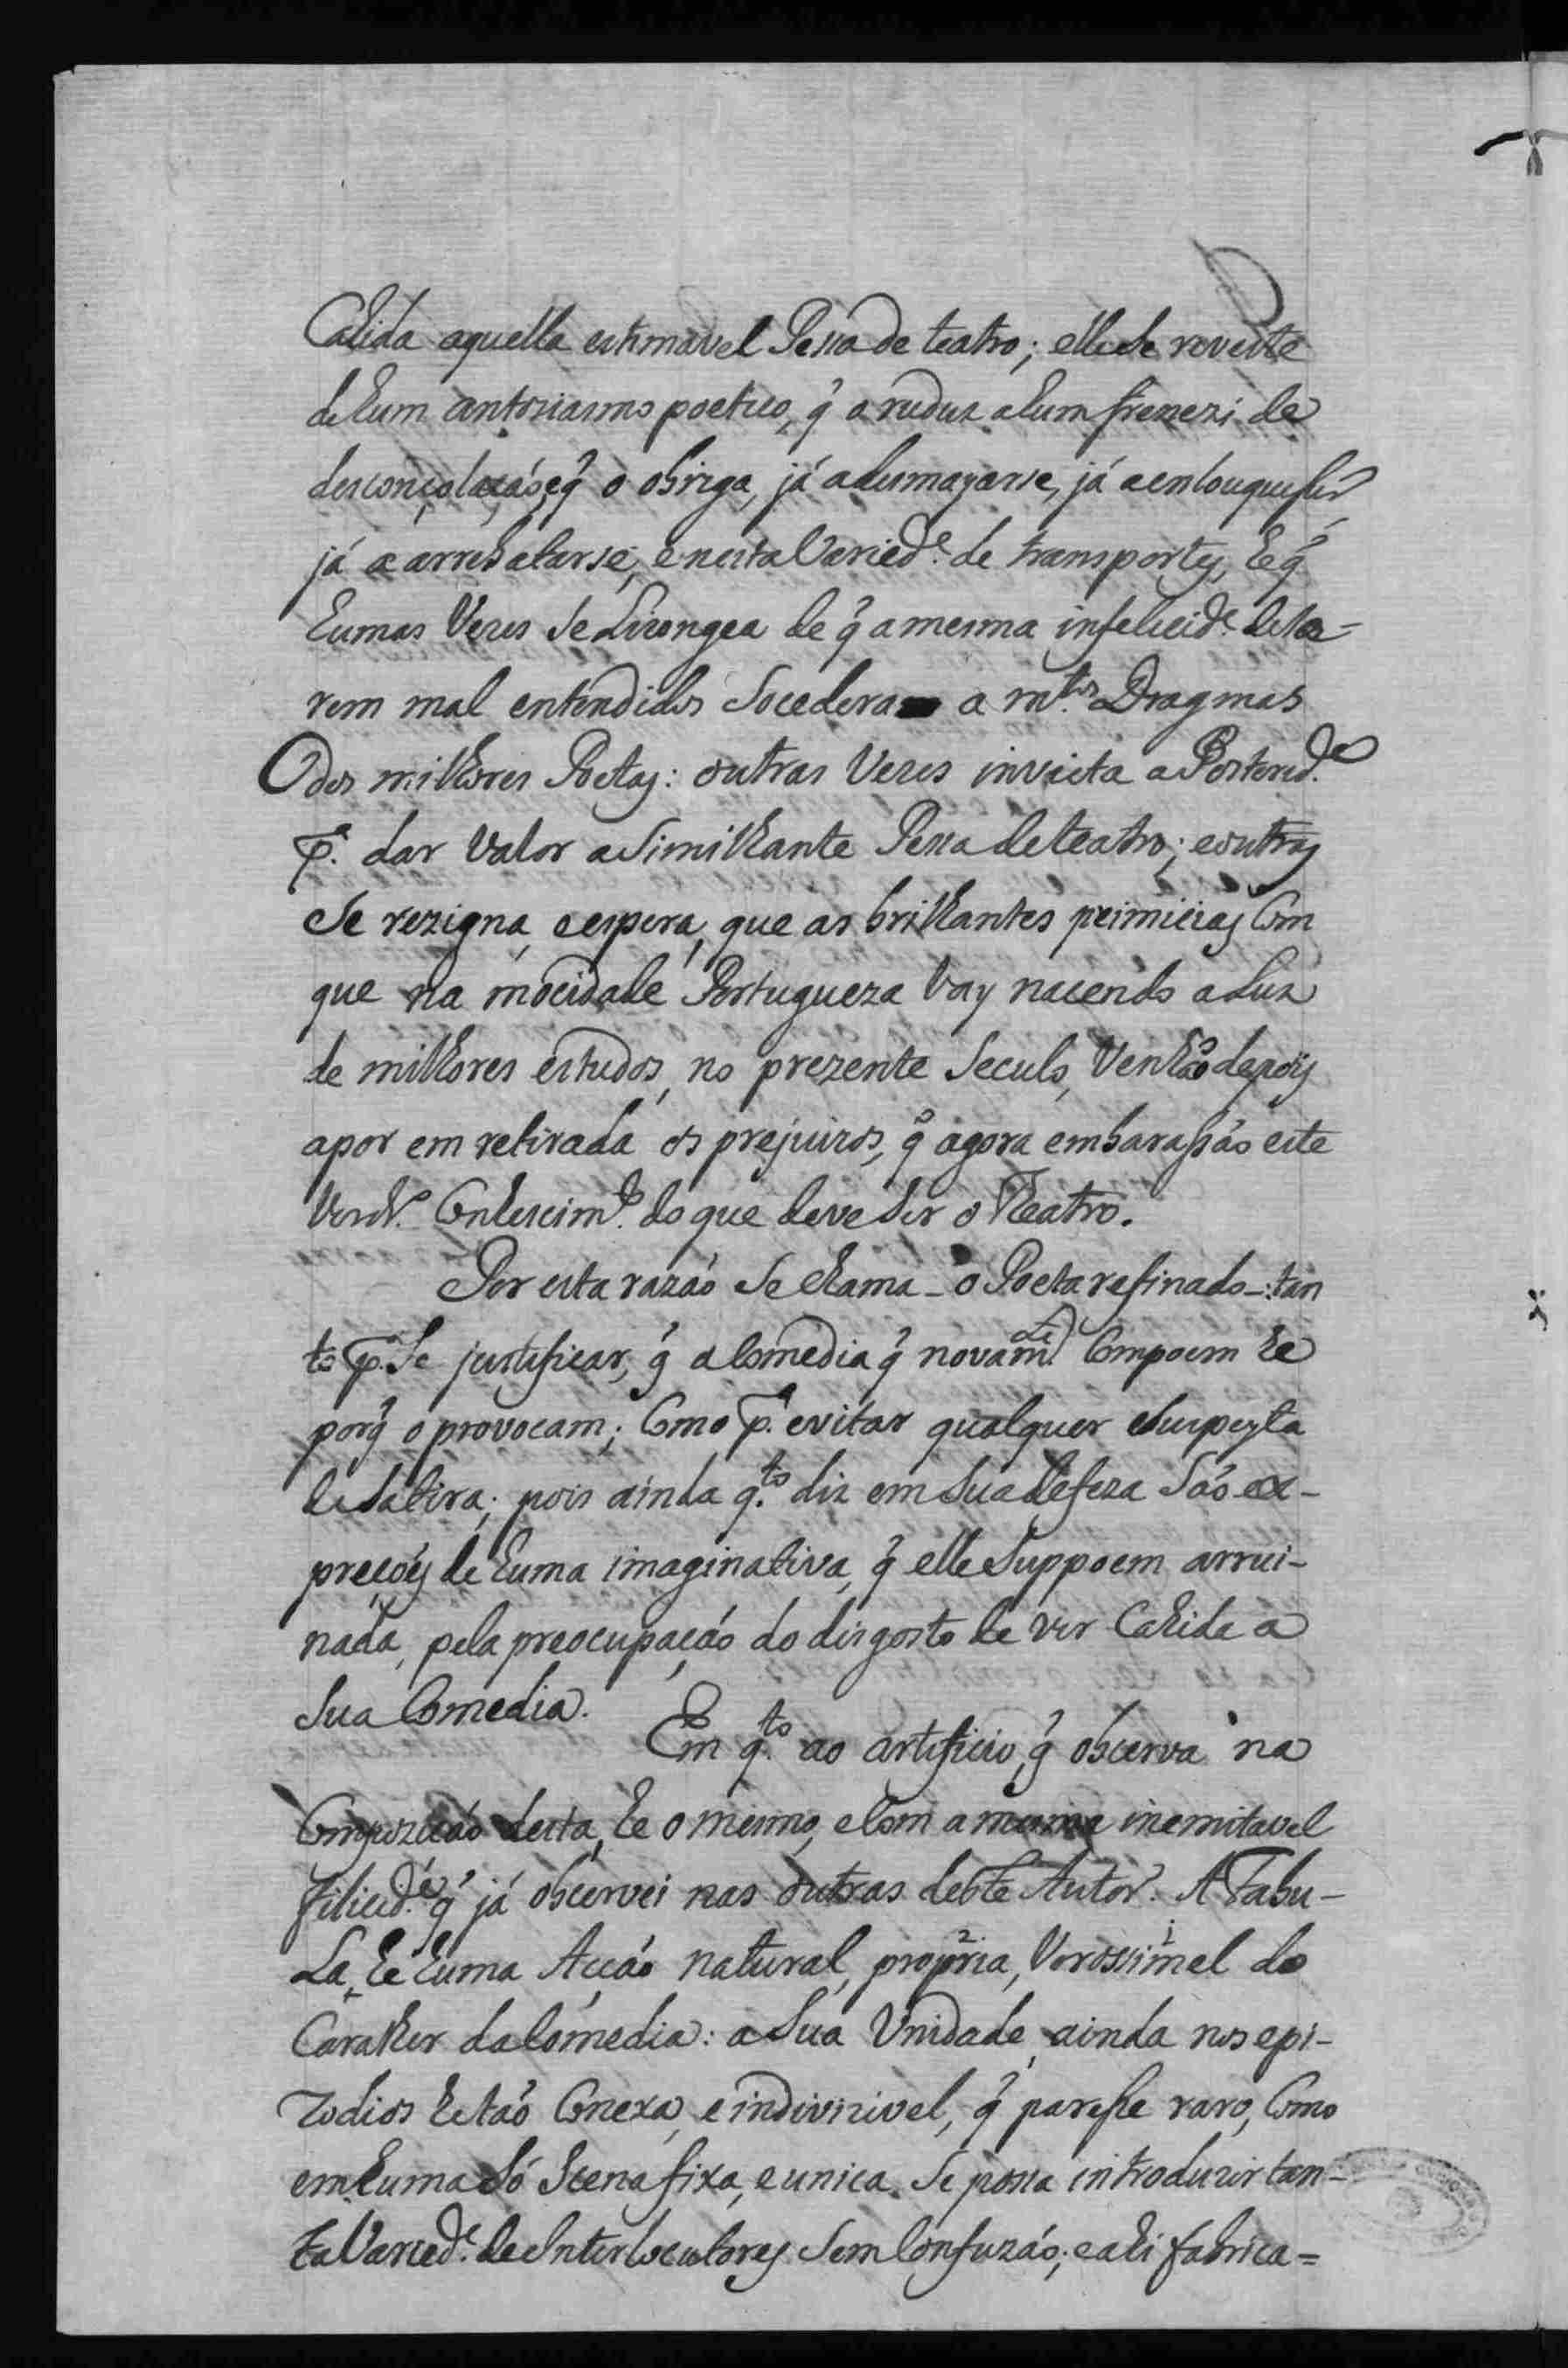 Cahida aquella estimavel Pessa de teatro; elle se reveste
de hum antosiasmo poetico, q̃ o reduz a hum frenezi de
desconçolaçaó, e q̃ o obriga, já a desmayarse, já a enlouquesser
já a arrebatarse, e nesta Varied.e de transportes, he q̃
humas Vezes se Lizongea de q̃ a mesma infelicid.e de se-
rem mal entendidos Soceder a m.tos Dragmas
dos milhores Poetas: outras Vezes invicta a Posterid.e
p.a dar Valor a Similhante Pessa de teatro; e outras
se rezigna, e espera, que as brilhantes primicias Com
que na mocidade Portugueza Vay nacendo a Luz
de milhores estudos, no prezente Seculo, Venhaõ depois
apor em retirada os prejuizos, q̃ agora embarassaõ este
Verd.o Conhescim.to do que deve ser o Theatro.
Por esta razaó Se chama - o Poeta refinado -: tan
to p.a Se justificar, q̃ a Comedia q̃ novam.te Compoem he
porq̃ o provocam; Como p.a evitar qualquer suspeyta
de Satira; pois ainda q.to diz em sua defeza Saó ex-
preçoẽs de huma imaginativa, q̃ elle Suppoem arrui-
nada, pela preocupaçaó do disgosto de ver Cahida a
sua Comedia.
Em q.to ao artificio, q̃ observa na
Compoziçaó desta, he o mesmo, e Com a mesma inemitavel
felicid.e q̃ já observei nas outras deste Autor. A Fabu-
La, he huma Acçaó natural, propria, Verossimel do
Carakter da Comedia: a Sua Unidade, ainda nos epi-
zodios he taó Conexa, e indivizivel, q̃ paresse raro, Como
em huma Só Scena fixa, e unica, Se possa introduzir tan-
ta Varied.e de Interlocutores Sem Confuzaó; e ahi fabrica=